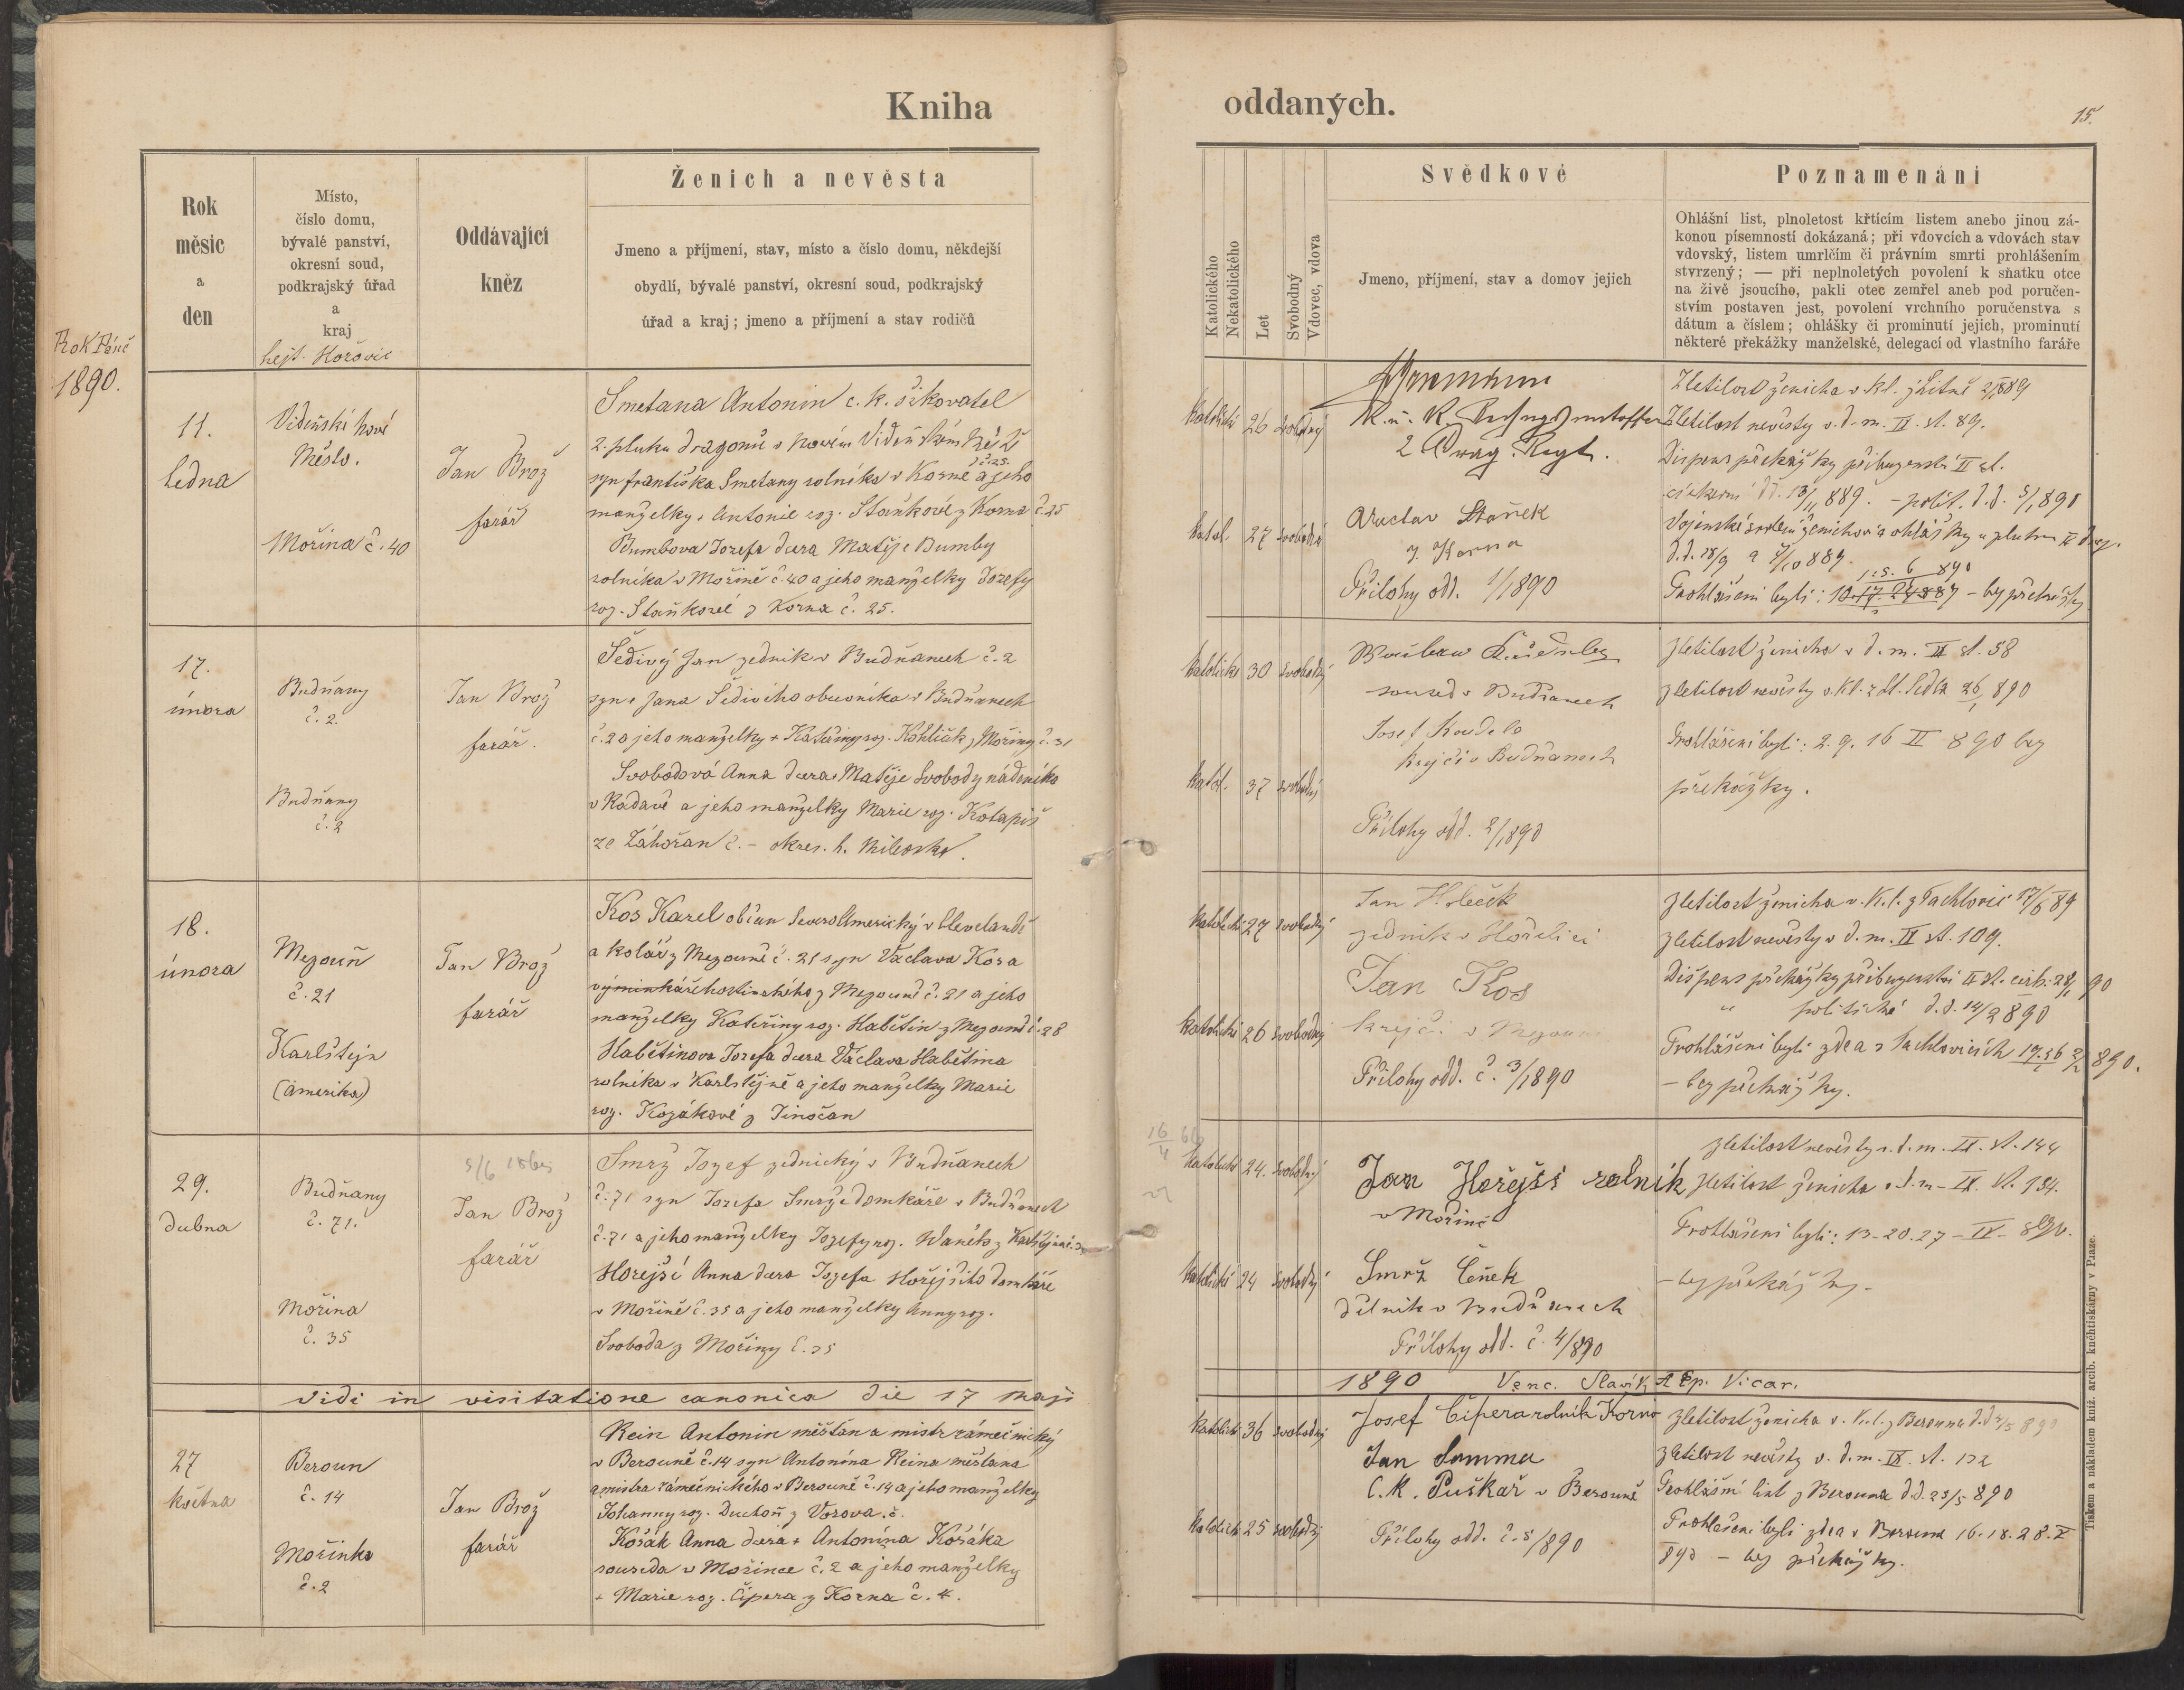 Kniha
oddaných.
15.
Rok Páně
1890.
Rok
měsíc
a
den
Místo,
číslo domu,
bývalé panství,
okresní soud,
podkrajský úřad
a
kraj
hejt. Hořovic
Oddávající
kněz
Ženich a nevěsta
Jmeno a příjmení, stav, místo a číslo domu, někdejší
obydlí, bývalé panství, okresní soud, podkrajský
úřad a kraj; jmeno a příjmení a stav rodičů
Katolického
Nekatolického
Let
Svobodný
Vdovec, vdova
Svědkové
Jmeno, příjmení, stav a domov jejich
Poznamenání
Ohlášní list, plnoletost křtícím listem anebo jinou zá-
konou písemností dokázaná; při vdovcích a vdovách stav
vdovský, listem umrlčím či právním smrti prohlášením
stvrzený; — při neplnoletých povolení k sňatku otce
na živě jsoucího, pakli otec zemřel aneb pod poručen-
stvím postaven jest, povolení vrchního poručenstva s
dátum a číslem; ohlášky či prominutí jejich, prominutí
některé překážky manželské, delegací od vlastního faráře
11.
ledna
Vídeňské Nové
Město.
Mořina č. 40
Jan Brož
farář
Smetana Antonin c. k. šikovatel
2. pluku dragonů v Novém Vídeňském Městě
syn františka Smetany rolníka v Korně č. 25. a jeho
manželky + Antonie roz. Staňkové z Korna č. 25
Bumbova Josefa dcera Matěje Bumby
rolníka v Mořině č. 40 a jeho manželky Josefy
roz. Staňkové z Korna č. 25.
katolický 26 svobodný
katol. 27 svobodná
K. u. K.
2 Drag. Regt.
Staněk
z Korna
Přílohy odd. 1/1890
Zletilost ženicha v kl.
Zletilost nevěsty v. d. m. II. st. 89.
Dispens překážky příbuzenství II st.
církevní d.d. 13/11 889. – polit. d.d. 5/1 890
Prohlášeni byli: – bez překážky
17.
února
Budňany
č. 2.
Budňany
č. 2
Jan Brož
farář.
Šedivý Jan zedník v Budňanech č. 2
syn + Jana Šedivího obuvníka v Budňanech
č. 2 a jeho manželky + Kateřiny roz. Kohlíček z Mořiny č. 31
Svobodová Anna dcera Matěje Svobody nádeníka
v Radavě a jeho manželky Marie roz. Kotapiš
ze Záhořan č. – okres. h. Milevsko.
katolický 30 svobodný
katol. 37 svobodná
soused v Budňanech
Josef Koudela
krejčí v Budňanech
Přílohy odd. 2/1890
Zletilost ženicha v d. m. II st. 58
zletilost nevěsty v. kl. z St. Sedla 26/1 890
Prohlášeni byli: 2. 9. 16 II 890 bez
překážky.
18.
února
Mezouň
č. 21
Karlštejn
(Amerika)
Jan Brož
farář
Kos Karel občan Severo Americký v Clevelandě
a kolář z Mezouně č. 21 syn Václava Kosa
z Mezouně č. 21 a jeho
manželky Kateřiny roz. Habětín z Mezouně č. 28
Habětinova Josefa dcera Václava Habětina
rolníka v Karlštejně a jeho manželky Marie
roz. Kozákové z Jinočan
katolický 27 svobodný
katolická 26 svobodná
Jan Holeček
zedník v Hořelici
Jan Kos
krejčí v Mezouni
Přílohy odd. č. 3/1890
Zletilost ženicha v. k. l. z Tachlovic 17/6 89
zletilost nevěsty v d. m. II st. 109.
Dispens překážky příbuzenství II st. círk. 28/1 90
" politické d.d. 14/2 890
Prohlášeni byli zde a v Tachlovicích 19. 26 2/2 890.
– bez překážky.
29.
dubna
Budňany
č. 71.
Mořina
č. 35
Jan Brož
farář
Smrž Josef zednický v Budňanech
č. 71 syn Josefa Smrže domkáře v Budňanech
č. 71 a jeho manželky Josefy roz. Waněk z Karlštejna
Hořejší Anna dcera Josefa Hořejšího domkáře
v Mořině č. 35 a jeho manželky Anny roz.
Svoboda z Mořiny č. 35
16/4
katolický 24. svobodný
katolická 24 svobodná
Jan Hořejší rolník
v Mořině
Smrž Čeněk
dělník v Budňanech
Přílohy odd. č. 4/890
zletilost nevěsty v. d. m. II. st. 144
zletilost ženicha v d. m. II. st. 134.
Prohlášeni byli: 13. 20. 27 – IV – 890.
– bez překážky.
vidi in visitatione canonica die 17 maji
1890 Venc. Slavík, A Ep. Vicar.
27
května
Beroun
č. 14
Mořinka
č. 2
Jan Brož
farář
Rein Antonin měšťan a mistr zámečnický
v Berouně č. 14 syn Antonína Reina měšťana
a mistra zámečnického v Berouně č. 14 a jeho manželky
Johanny roz. Duchoň z Vosova. č.
Košák Anna dcera + Antonína Košáka
souseda v Mořince č. 2 a jeho manželky
+ Marie roz. Čipera z Korna č. 4.
katolický 36 svobodný
katolická 25 svobodná
Josef Čipera rolník Korno
Jan Samma
C. K. Puškař v Berouně
Přílohy odd. č. 5/890
zletilost ženicha v. k. l. z Berouna
zletilost nevěsty v. d. m. II. st. 132
Prohlášní list z Berouna d.d. 23/5 890
Prohlášeni byli zde a v Berouně 16. 18. 28. V
890 – bez překážky.
Tiskem a nákladem kníž. arcib. knihtiskárny v Praze.